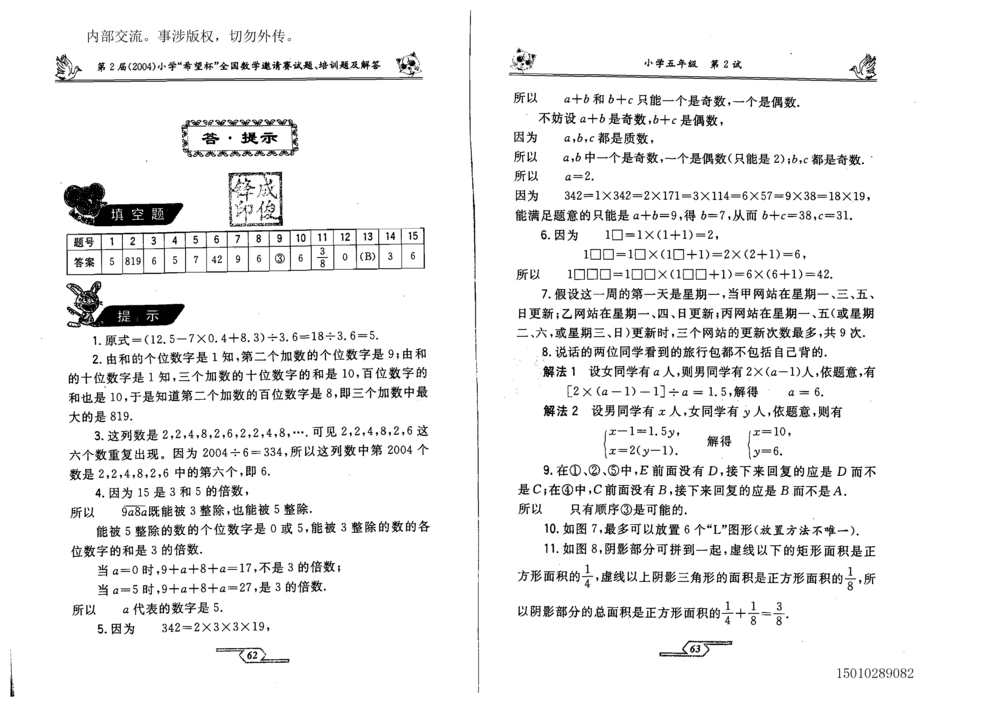 内部交流。事涉版权，切勿外传。
第2届(2004)小学“希望杯”全国数学邀请赛试题、培训题及解答
答·提示
填空题
题号 1 2 3 4 5 6 7 8 9 10 11 12 13 14 15
答案 5 819 6 5 7 42 9 6 ③ 6 3/8 0 (B) 3 6
提示
1. 原式=(12.5-7×0.4+8.3)÷3.6=18÷3.6=5.
2. 由和的个位数字是1知,第二个加数的个位数字是9;由和
的十位数字是1知,三个加数的十位数字的和是10,百位数字的
和也是10,于是知道第二个加数的百位数字是8,即三个加数中最
大的是819.
3. 这列数是2,2,4,8,2,6,2,2,4,8,…. 可见2,2,4,8,2,6这
六个数重复出现。因为2004÷6=334,所以这列数中第2004个
数是2,2,4,8,2,6中的第六个,即6.
4. 因为15是3和5的倍数,
所以 9a8a既能被3整除,也能被5整除.
能被5整除的数的个位数字是0或5,能被3整除的数的各
位数字的和是3的倍数.
当a=0时,9+a+8+a=17,不是3的倍数;
当a=5时,9+a+8+a=27,是3的倍数.
所以 a代表的数字是5.
5. 因为 342=2×3×3×19,
62
小学五年级 第2试
所以 a+b和b+c只能一个是奇数,一个是偶数.
不妨设a+b是奇数,b+c是偶数,
因为 a,b,c都是质数,
所以 a,b中一个是奇数,一个是偶数(只能是2);b,c都是奇数.
所以 a=2.
因为 342=1×342=2×171=3×114=6×57=9×38=18×19,
能满足题意的只能是a+b=9,得b=7,从而b+c=38,c=31.
6. 因为 1□=1×(1+1)=2,
1□□=1□×(1□+1)=2×(2+1)=6,
所以 1□□□=1□□×(1□□+1)=6×(6+1)=42.
7. 假设这一周的第一天是星期一,当甲网站在星期一、三、五、
日更新;乙网站在星期一、四、日更新;丙网站在星期一、五(或星期
二、六,或星期三、日)更新时,三个网站的更新次数最多,共9次.
8. 说话的两位同学看到的旅行包都不包括自己背的.
解法1 设女同学有a人,则男同学有2×(a-1)人,依题意,有
[2×(a-1)-1]÷a=1.5,解得 a=6.
解法2 设男同学有x人,女同学有y人,依题意,则有
{x-1=1.5y, x=2(y-1). 解得 {x=10, y=6.
9. 在①、②、⑤中,E前面没有D,接下来回复的应是D而不
是C;在④中,C前面没有B,接下来回复的应是B而不是A.
所以 只有顺序③是可能的.
10. 如图7,最多可以放置6个“L”图形(放置方法不唯一).
11. 如图8,阴影部分可拼到一起,虚线以下的矩形面积是正
方形面积的1/4,虚线以上阴影三角形的面积是正方形面积的1/8,所
以阴影部分的总面积是正方形面积的1/4+1/8=3/8.
63
15010289082